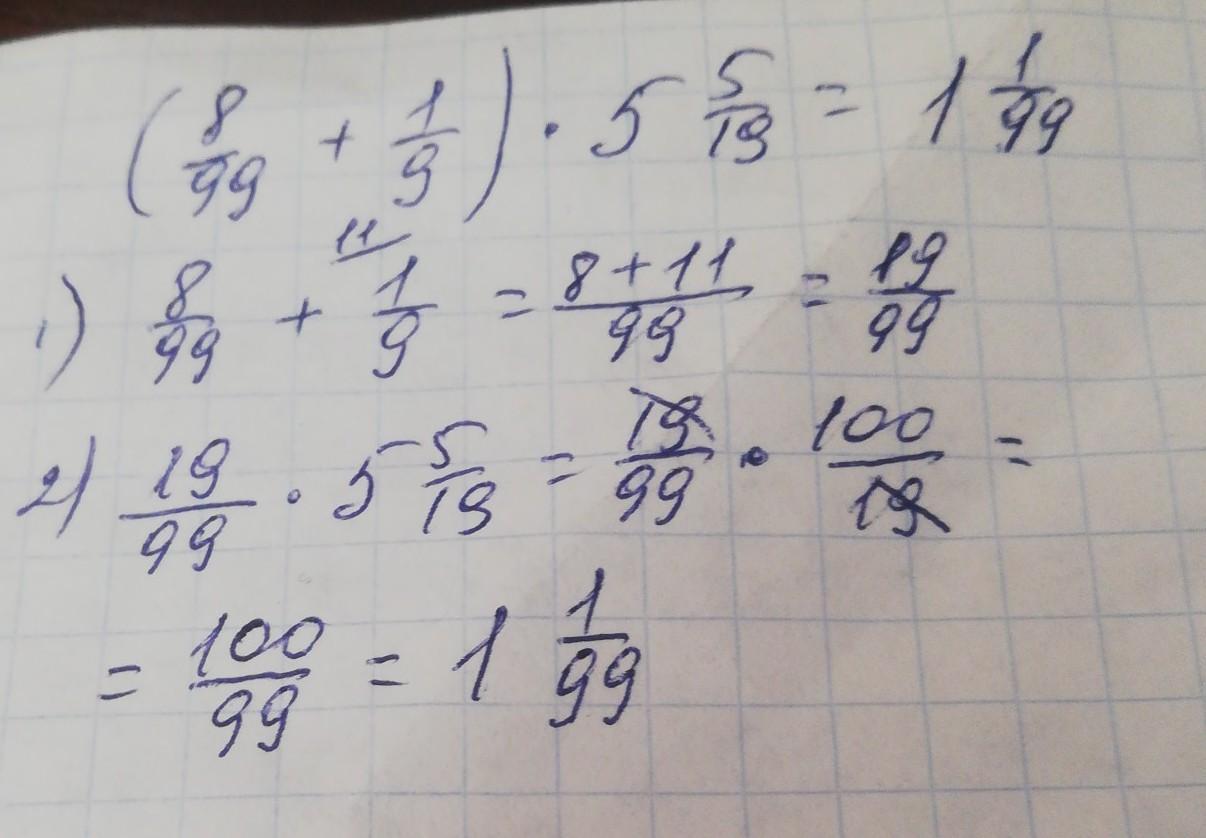 (8/99 + 1/9) · 5 5/19 = 1 1/99
1) 8/99 + 1/9 11 = 8+11/99 = 19/99
2) 19/99 · 5 5/19 = 19/99 · 100/19 =
= 100/99 = 1 1/99